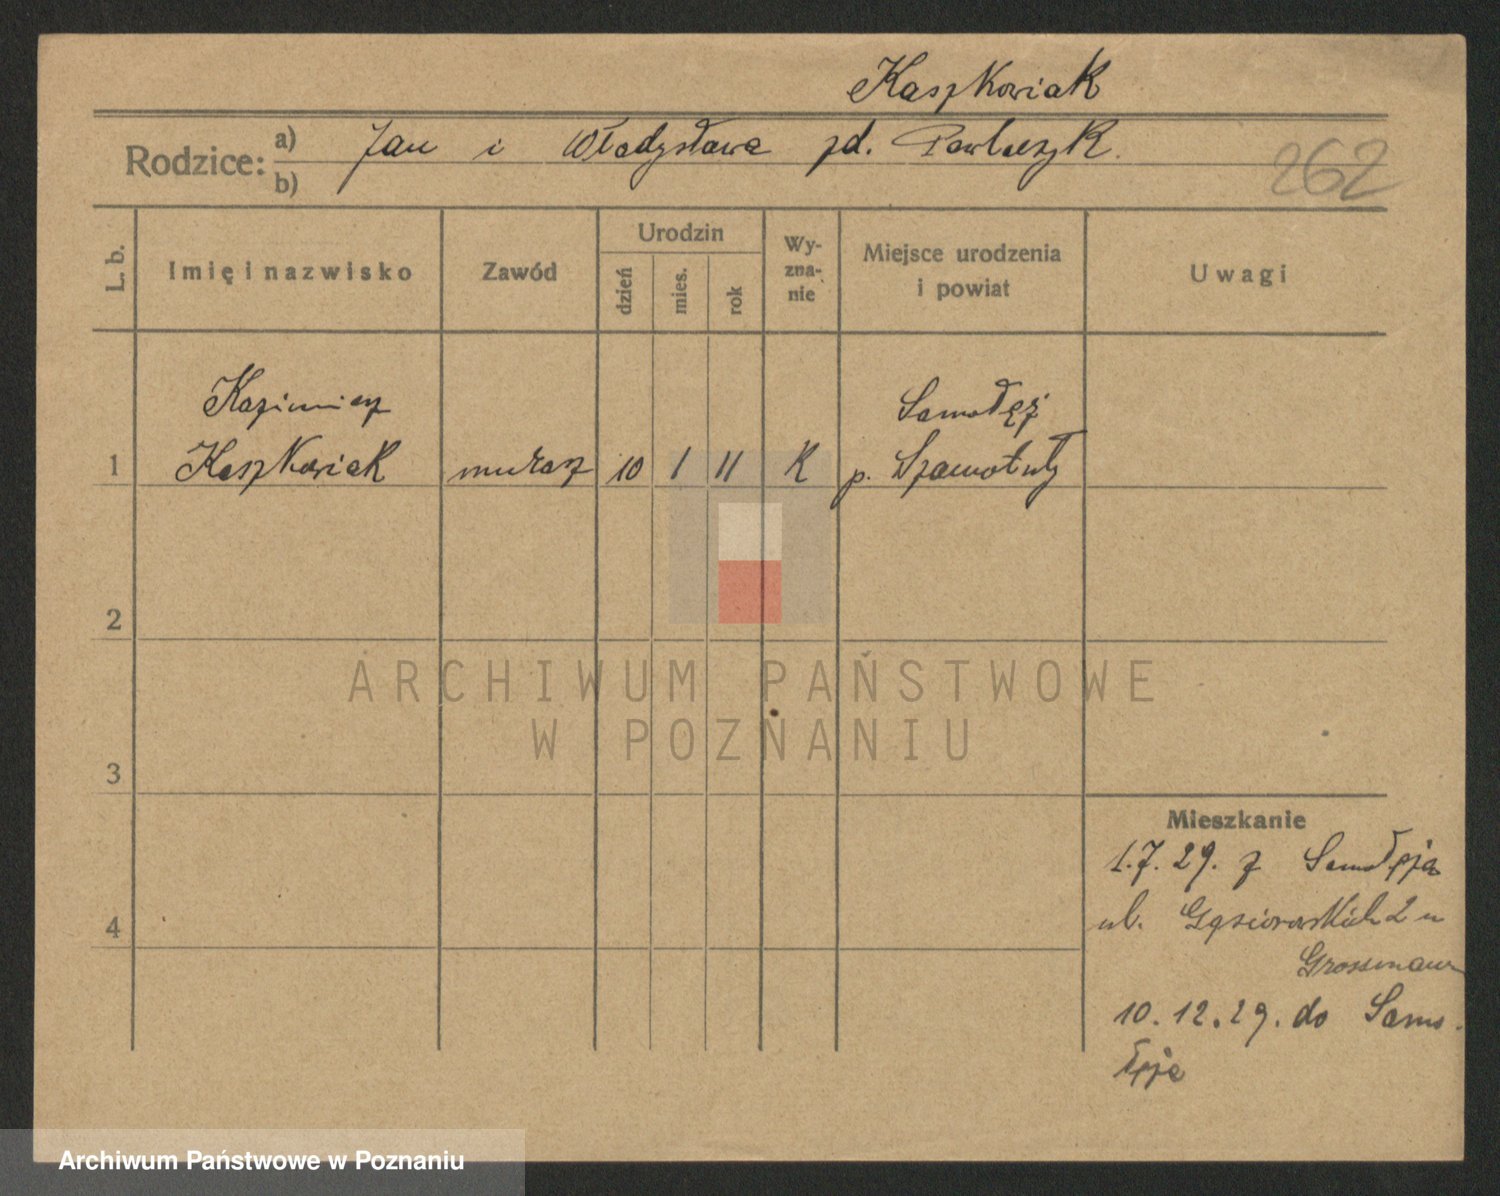 Kaszkowiak
Rodzice: a) Jan i Władysława zd. Pawluszyk.
b)
262
L. b.
Imię i nazwisko
Zawód
Urodzin
dzień
mies.
rok
Wy-
zna-
nie
Miejsce urodzenia
i powiat
Uwagi
Kazimierz
Samołęż
1 Kaszkowiak murarz 10 1 11 K p. Szamotuły
2
3
4
ARCHIWUM PAŃSTWOWE
W POZNANIU
Mieszkanie
1.7.29. z Samołęża
ul. Gąsiorowskich 2 u
Grossmann
10.12.29. do Samo-
łęża
Archiwum Państwowe w Poznaniu